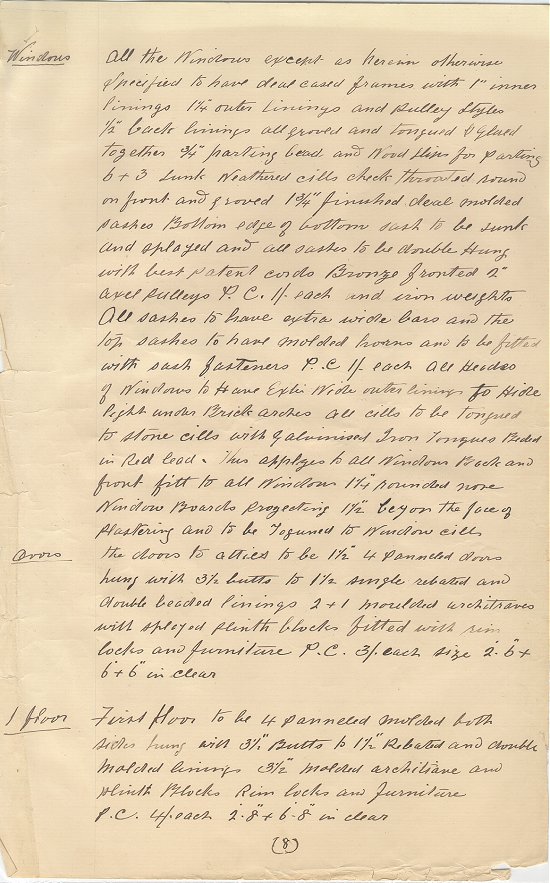 Windows
All the Windows except as herein otherwise
specified to have deal cased frames with 1" inner
linings 1¼ outer Linings and Pulley Styles
½" back linings all groved and tongued & glued
together ¾" parting bead and Wood slips for parting
6 + 3 sunk Weathered cills check throated round
on front and groved 1¾" finished deal molded
sashes Bottom edge of bottom sash to be sunk
and splayed and all sashes to be double Hung
with best patent cords Bronze fronted 2"
axel pulleys P.C. 1/ each and iron weights
All sashes to have extra wide bars and the
top sashes to have molded horns and to be fitted
with sash fasteners P.C 1/ each All Heads
of Windows to Have Extr Wide outer linings to Hide
light under Brick arches all cills to be tongued
to stone cills with Galvinised Iron Tongues Beded
in Red lead. This applyes to all Windows Back and
front fitt to all Windows 1¼" rounded nose
Window Boards projecting 1½" beyon the face of
Plastering and to be Toguned to Window cills
Doors
the doors to attics to be 1½" 4 Panneled doors
hung with 3½ butts to 1½ single rebated and
double beaded linings 2 + 1 moulded architraves
with splayed plinth blocks fitted with rim
locks and furniture P.C. 3/. each size 2'.6" +
6' + 6" in clear
1 floor
First floor to be 4 Panneled Molded both
sides hung with 3½" Butts to 1½" Rebated and double
Molded linings 3½" Molded architrave and
plinth Blocks Rim locks and furniture
P.C. 4/. each 2'.8" + 6'.8" in clear
(8)